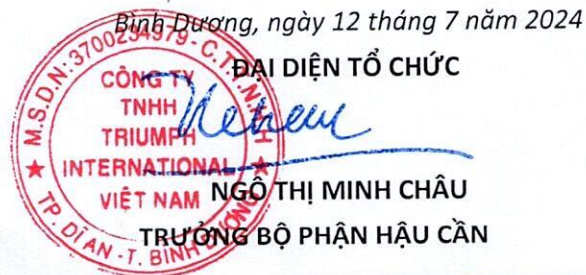 Bình Dương, ngày 12 tháng 7 năm 2024
ĐẠI DIỆN TỔ CHỨC
M.S.D.N: 3700234979 - C.T.T.N.H.H
CÔNG TY
TNHH
TRIUMPH
INTERNATIONAL
VIỆT NAM
TP. DĨ AN - T. BÌNH DƯƠNG
NGÔ THỊ MINH CHÂU
TRƯỞNG BỘ PHẬN HẬU CẦN